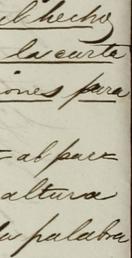 el hecho,
la carta
iones para
= al paez
altura
la palabra